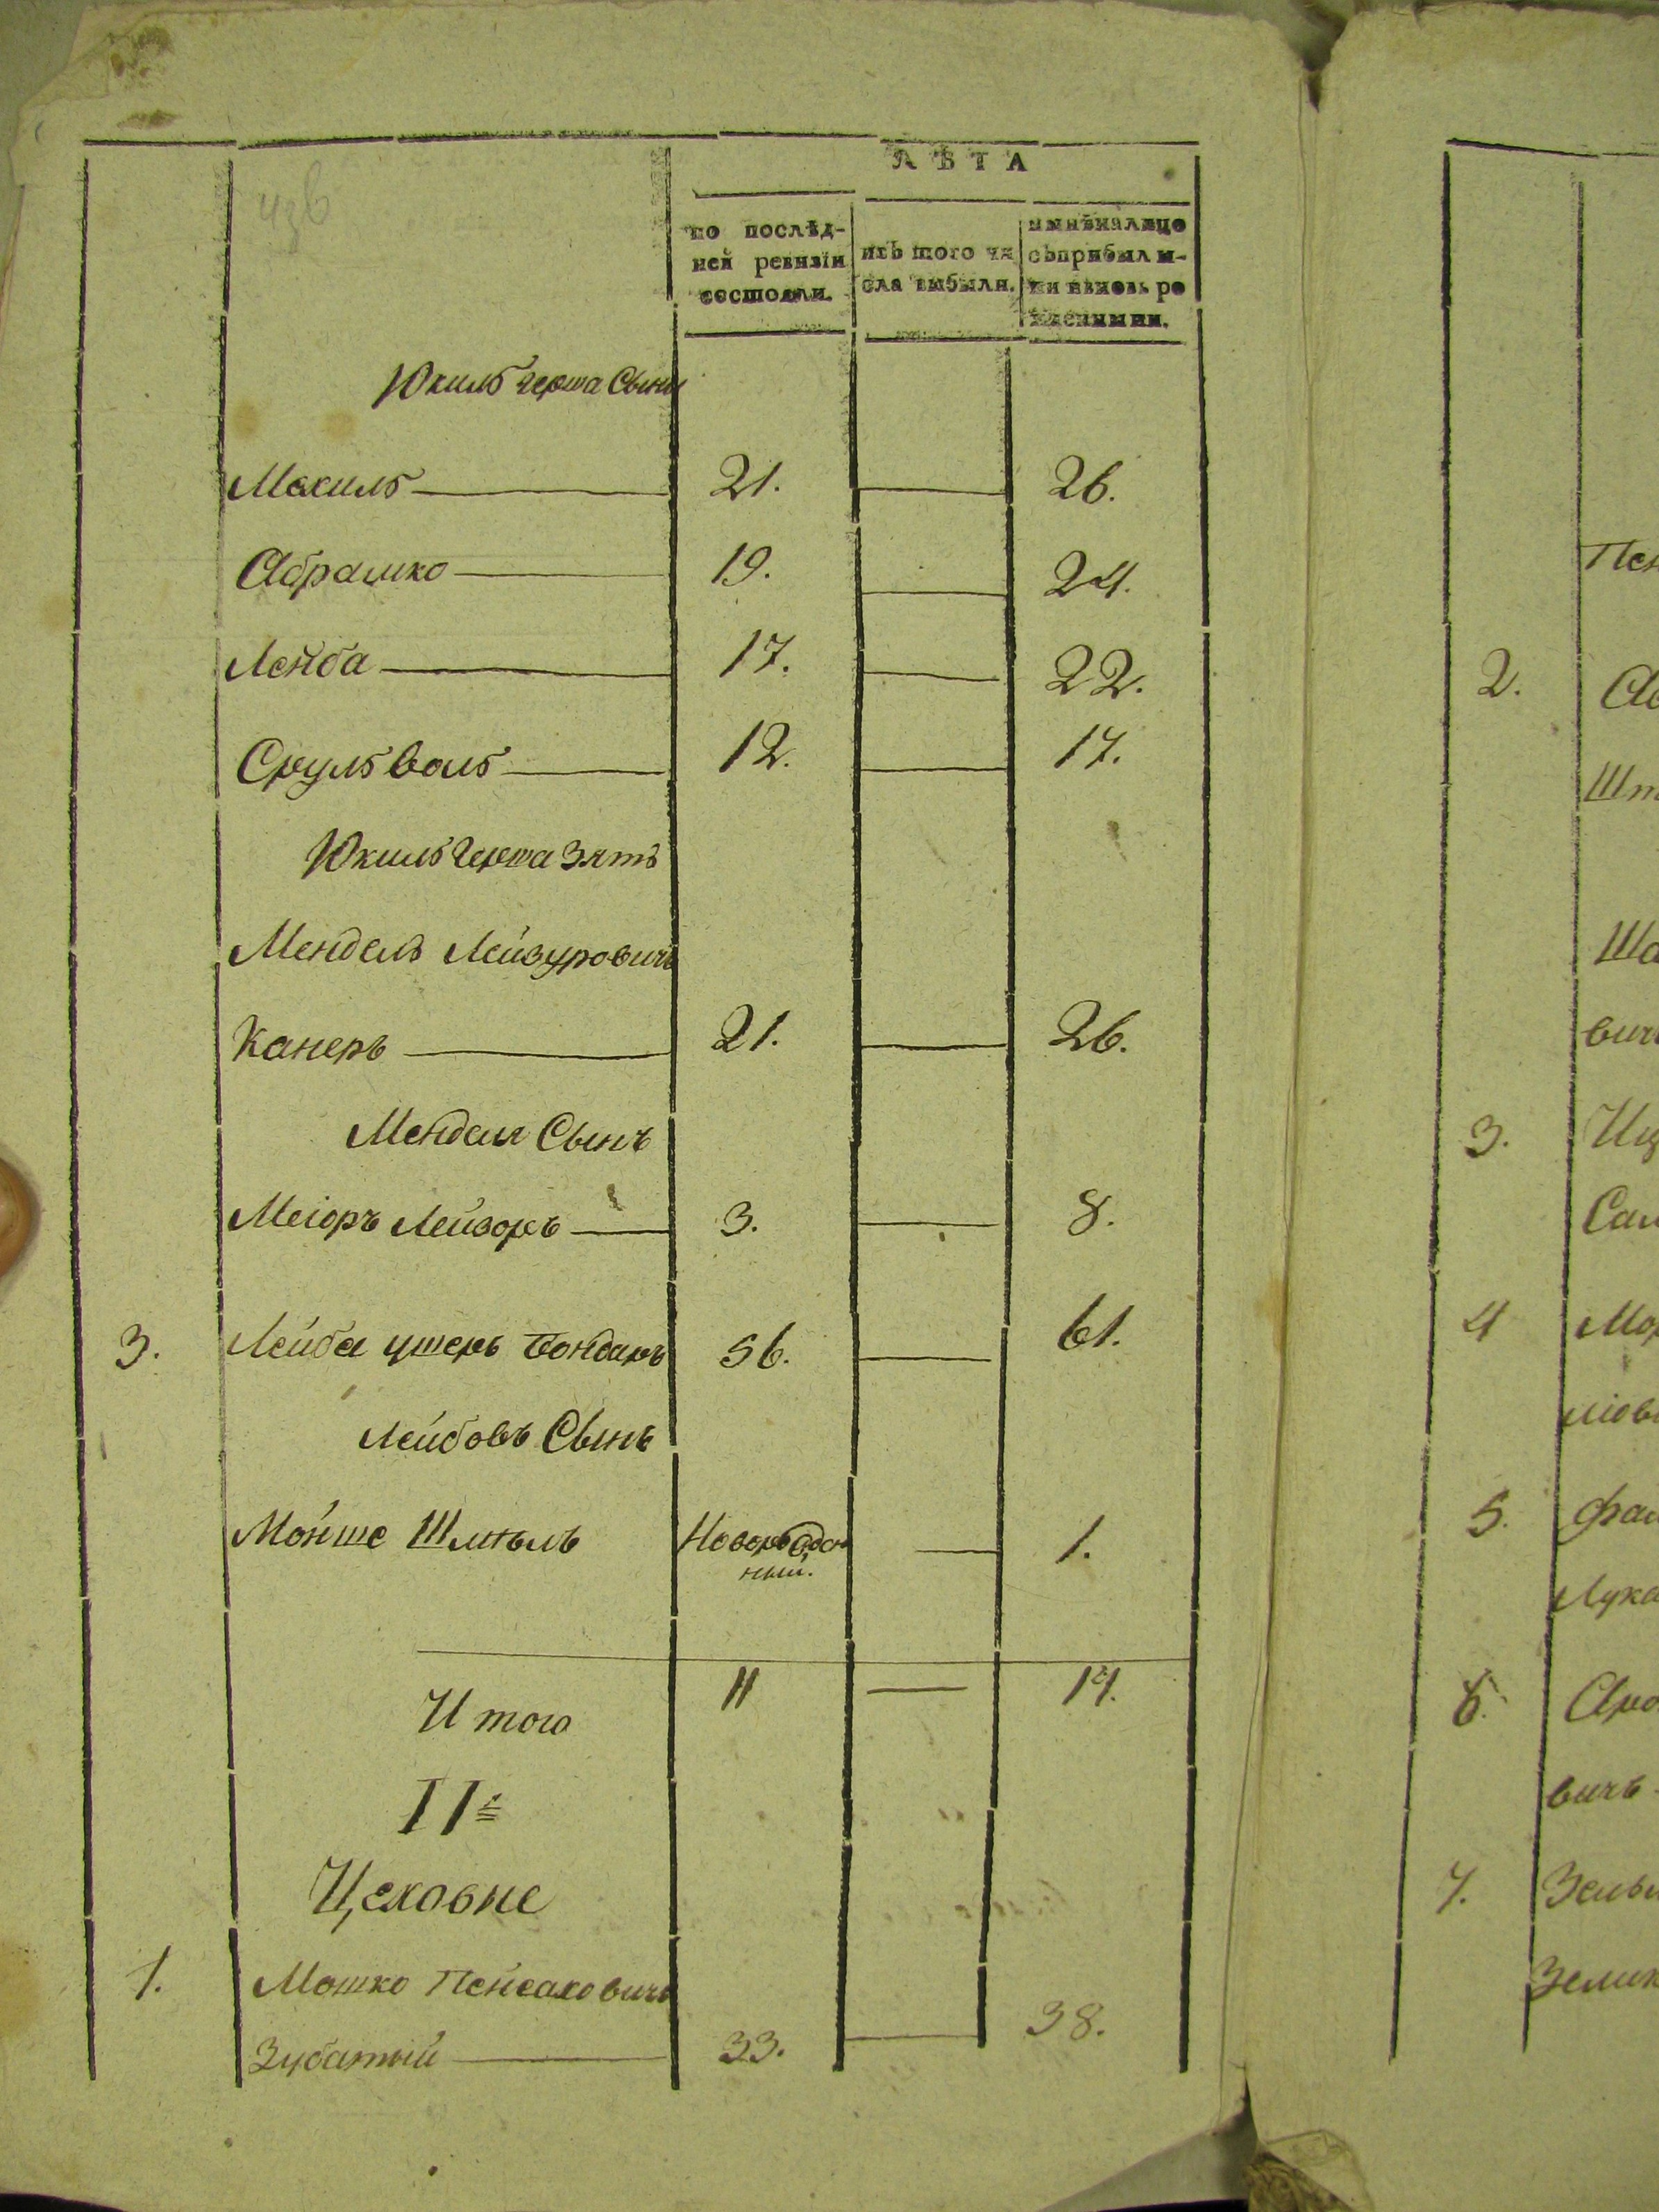 изв
ЛѢТА
по послѣд-
ней ревизіи
состояли.
изъ того чи
сла выбыли.
нынѣналицо
съприбылы-
ми ивновь ро
жденными.
Юкиль герша Сыны
Мехиль 21. 26.
Абрамко 19. 24.
Лейба 17. 22.
Сруль Воль 12. 17.
Юкиль герша Зять
Мендель Лейзуровичь
Канеръ 21. 26.
Менделя Сынъ
Меіоръ Лейзоръ 3. 8.
3. Лейба ушеръ Бондаръ 56. 61.
Лейбовъ Сынъ
Мойше Шміоль Новорожден 1.
ный.
Итого 11 14.
II е
Цеховые
1. Мошко Пейсаховичъ
Зубатый 33. 38.
Пей
2. Аб
Шт
Ша
вичъ
3. Иц
Сам
4 Мор
ліови
5. Фай
Лука
6. Аро
вичъ
7. Зель
Зелик